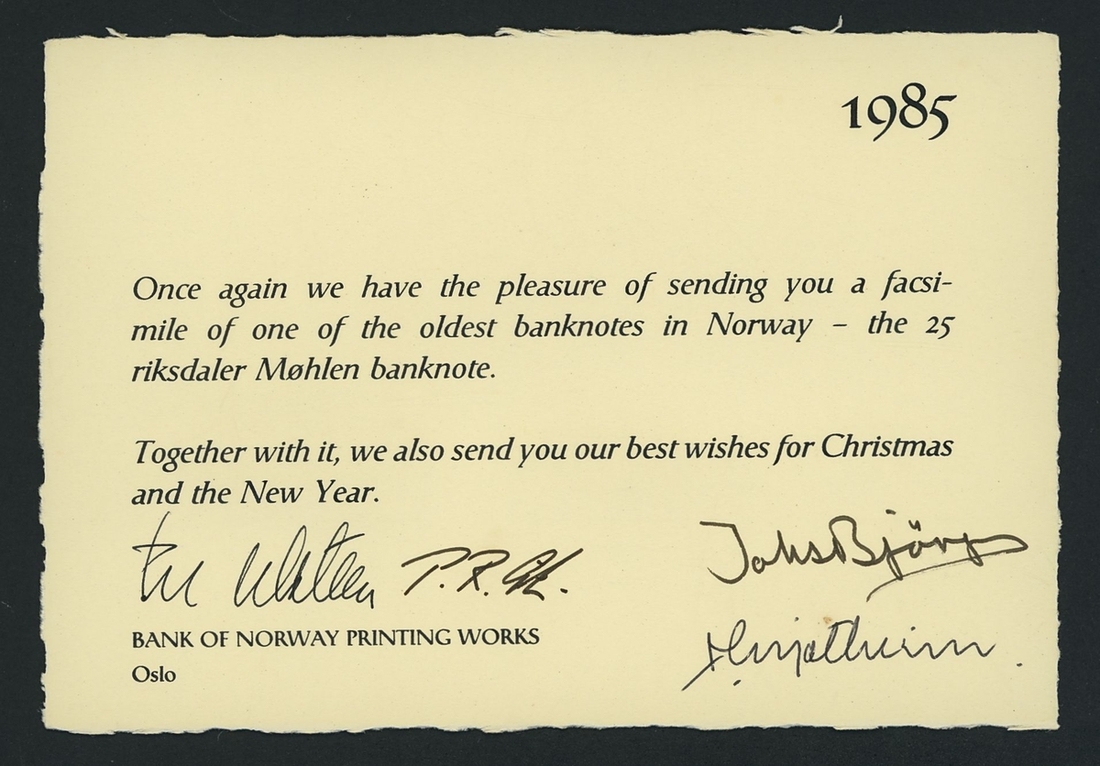 1985
Once again we have the pleasure of sending you a facsi-
mile of one of the oldest banknotes in Norway – the 25
riksdaler Møhlen banknote.
Together with it, we also send you our best wishes for Christmas
and the New Year.
BANK OF NORWAY PRINTING WORKS
Oslo